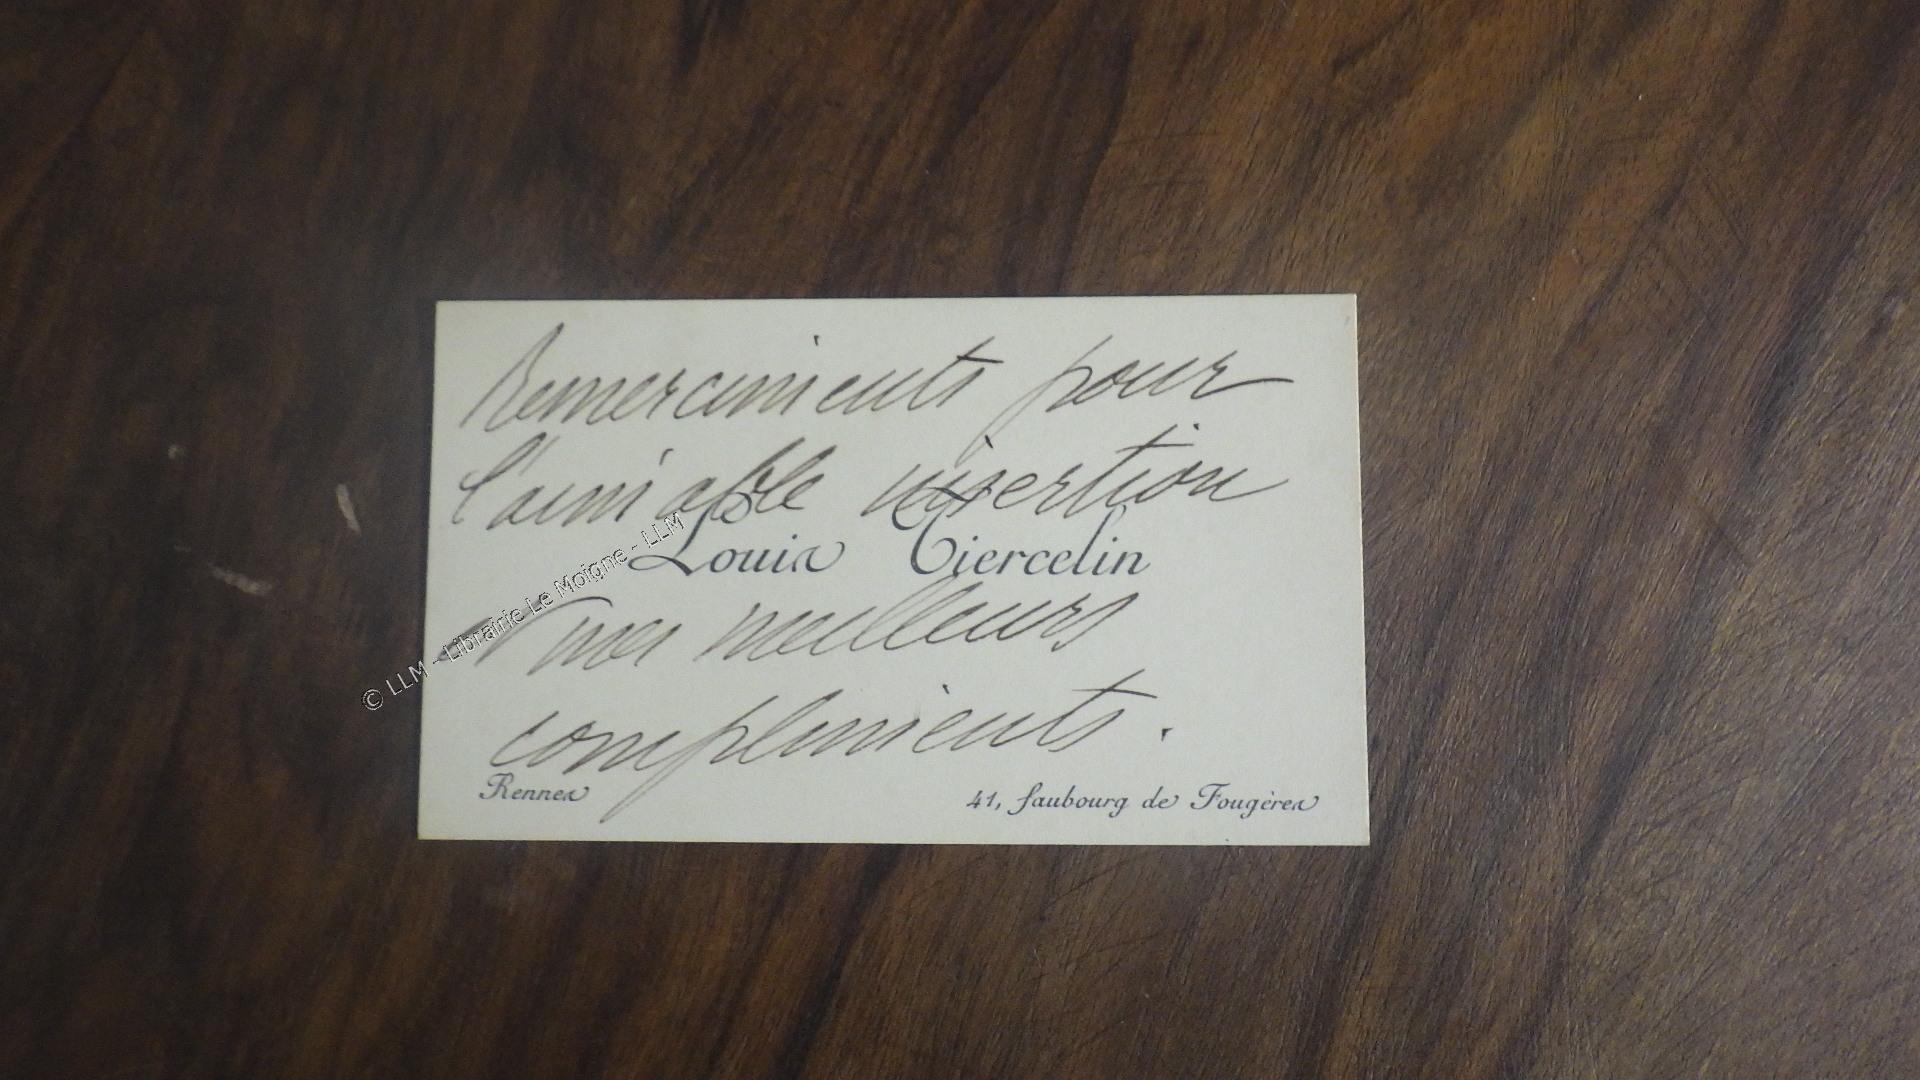 Remerciments pour
l'aimable insertion
Louis Tiercelin
mes meilleurs
compliments.
Rennes
41, faubourg de Fougères
© LLM - Librairie Le Moigne - LLM